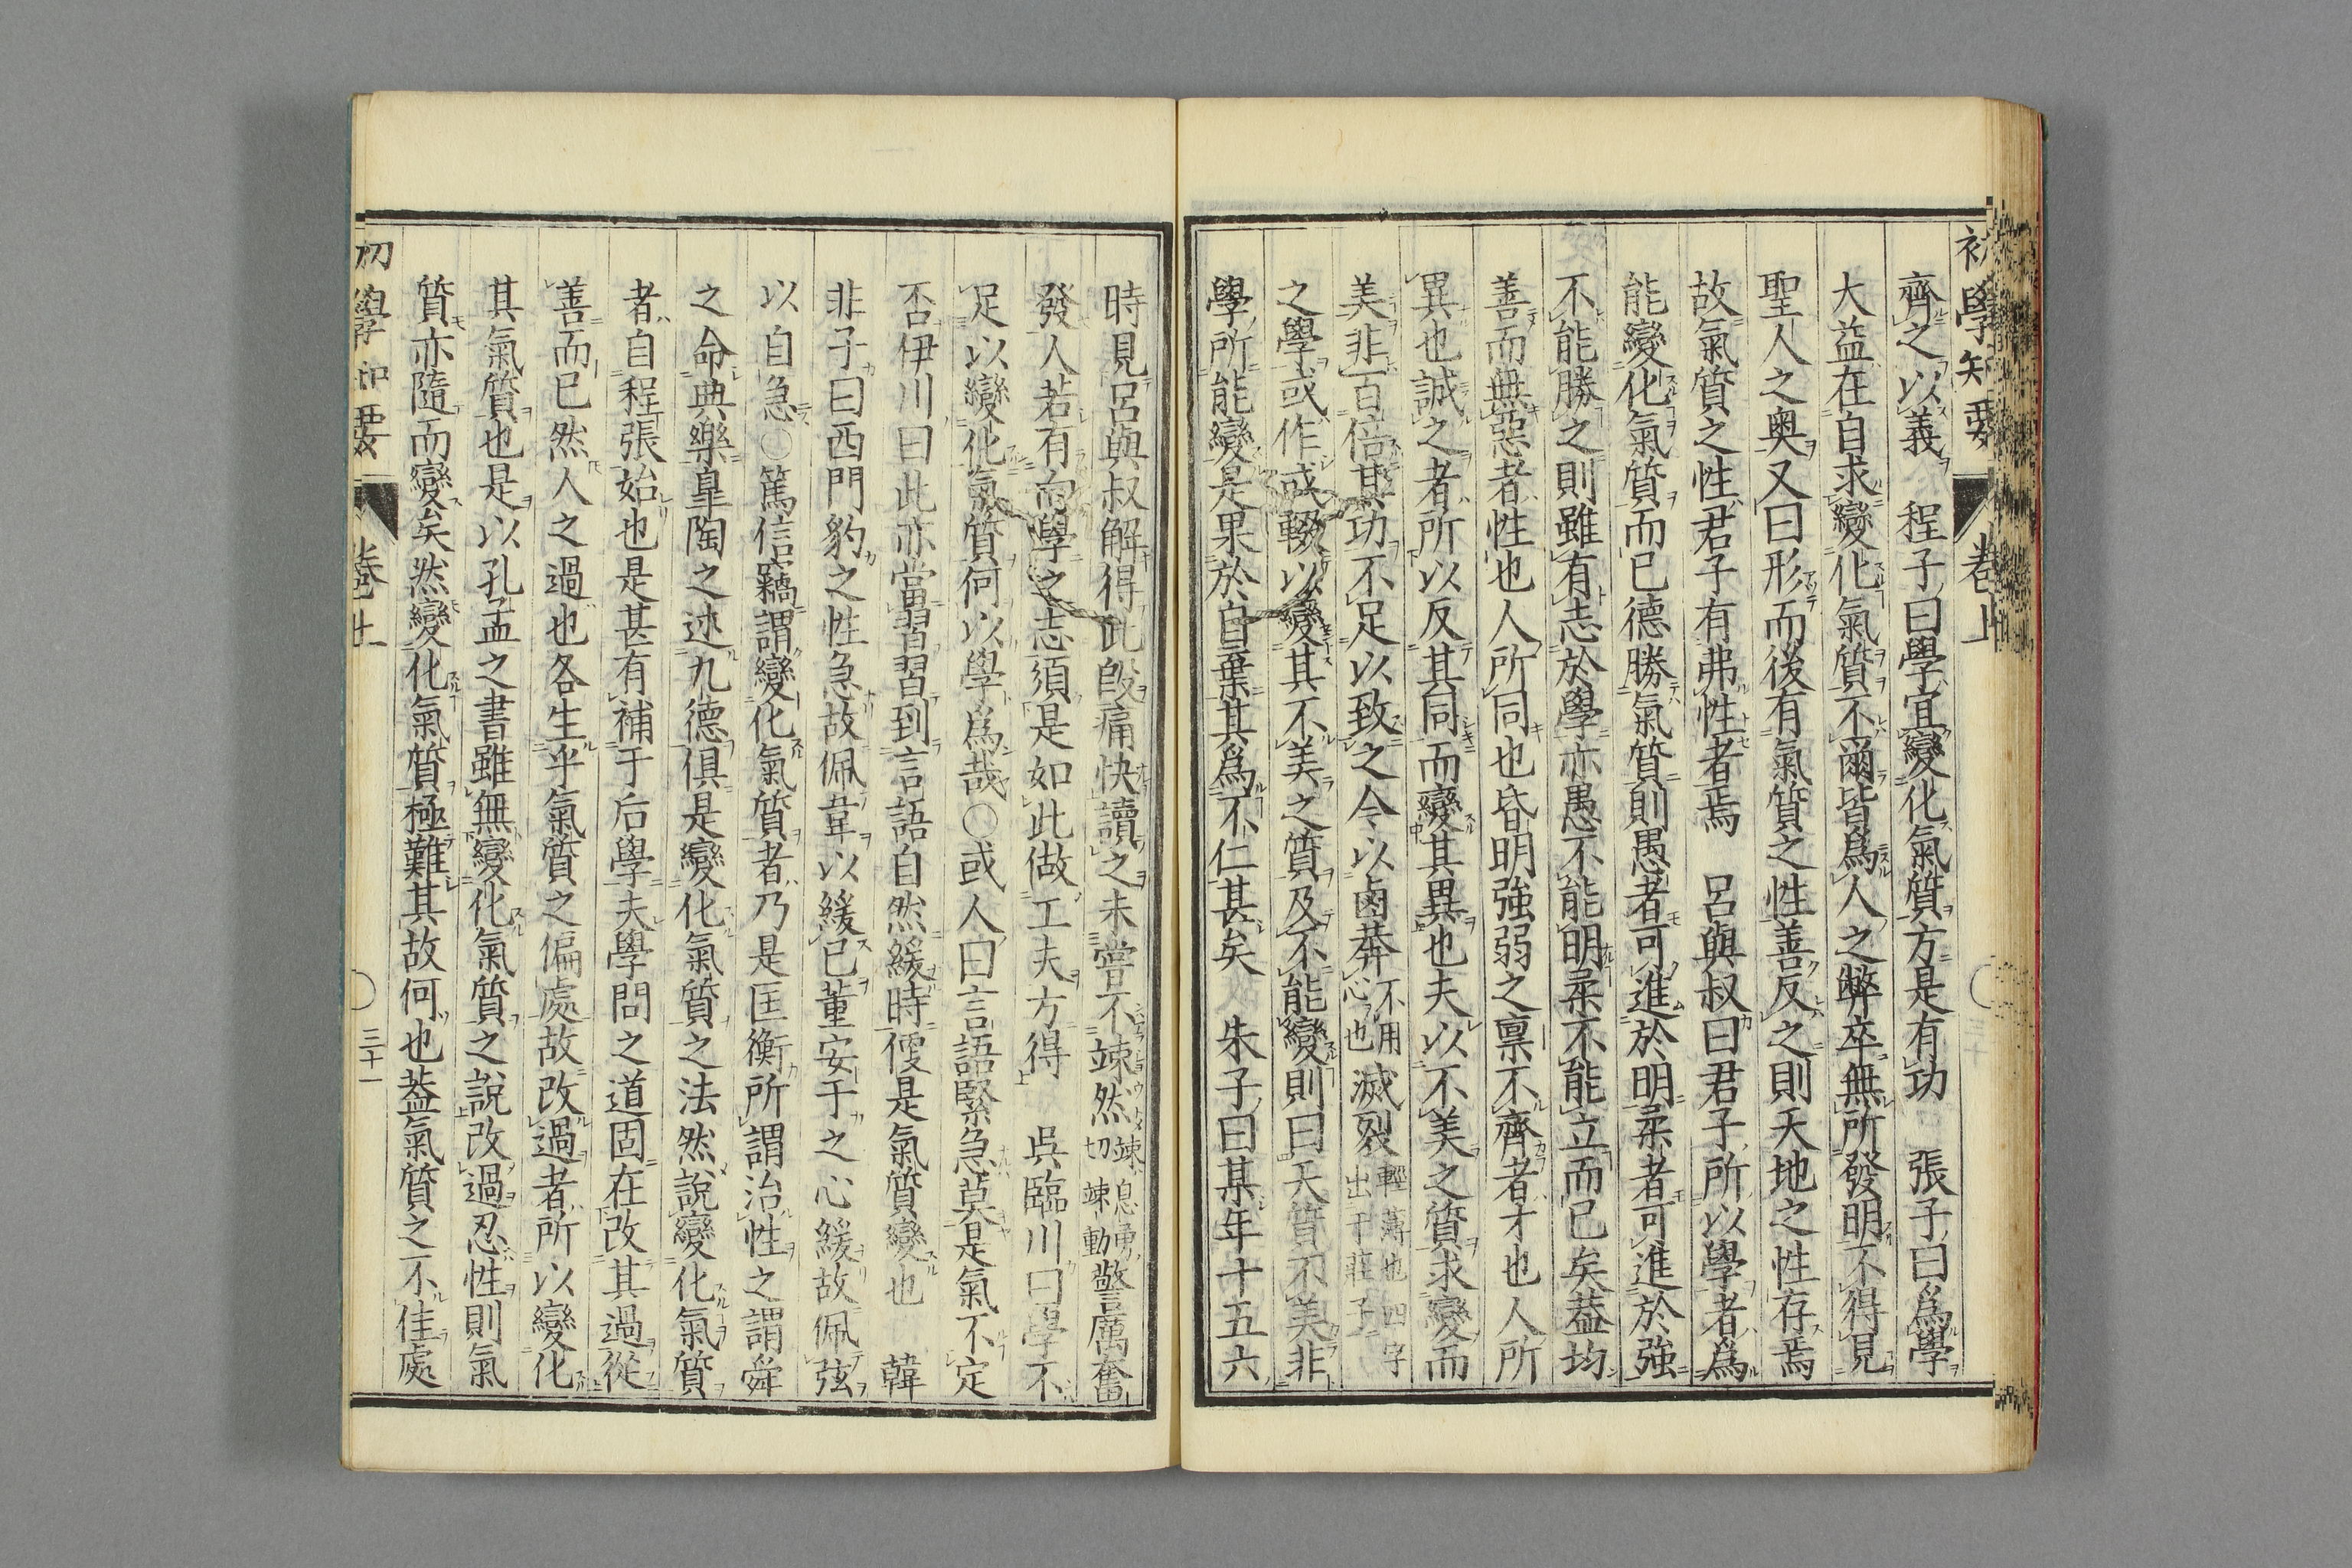 初學知要
卷上
齊之以義　程子曰學宜變化氣質方是有功　張子曰爲學
大益在自求變化氣質不爾皆爲人之弊卒無所發明不得見
聖人之奥又曰形而後有氣質之性善反之則天地之性存焉
故氣質之性君子有弗性者焉　呂與叔曰君子所以學者爲
能變化氣質而已德勝氣質則愚者可進於明柔者可進於強
不能勝之則雖有志於學亦愚不能明柔不能立而已矣葢均
善而無惡者性也人所同也昏明強弱之禀不齊者才也人所
異也誠之者所以反其同而變其異也夫以不美之質求變而
美非百倍其功不足以致之今以鹵莽不用心也滅裂輕薄也四字出于莊子
之學或作或輟以變其不美之質及不能變則曰天質不美非
學所能變是果於自棄其爲不仁甚矣　朱子曰某年十五六
時見呂與叔解得此段痛快讀之未嘗不竦然竦息勇切竦動警厲奮
發人若有向學之志須是如此做工夫方得　吳臨川曰學不
足以變化氣質何以學爲哉〇或人曰言語緊急莫是氣不定
否伊川曰此亦當習習到言語自然緩時便是氣質變也　韓
非子曰西門豹之性急故佩韋以緩已董安于之心緩故佩弦
以自急〇篤信竊謂變化氣質者乃是匡衡所謂治性之謂舜
之命典樂皐陶之述九德俱是變化氣質之法然說變化氣質
者自程張始也是甚有補于后學夫學問之道固在改其過從
善而已然人之過也各生乎氣質之偏處故改過者所以變化
其氣質也是以孔孟之書雖無變化氣質之說改過忍性則氣
質亦隨而變矣然變化氣質極難其故何也葢氣質之不佳處
初學知要
卷上
三十一